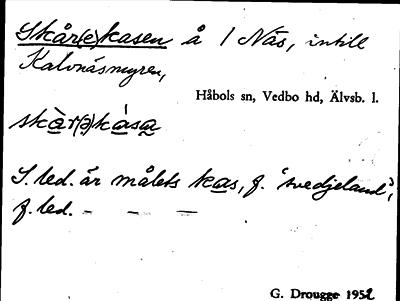 Skår(e)kasen å 1 Näs, intill
Kalvnäsmyren,
Håbols sn, Vedbo hd, Älvsb. l.
skàr(ə)kàsa
S. led. är målets kas, f. 'svedjeland',
f. led. – – –
G. Drougge 1952